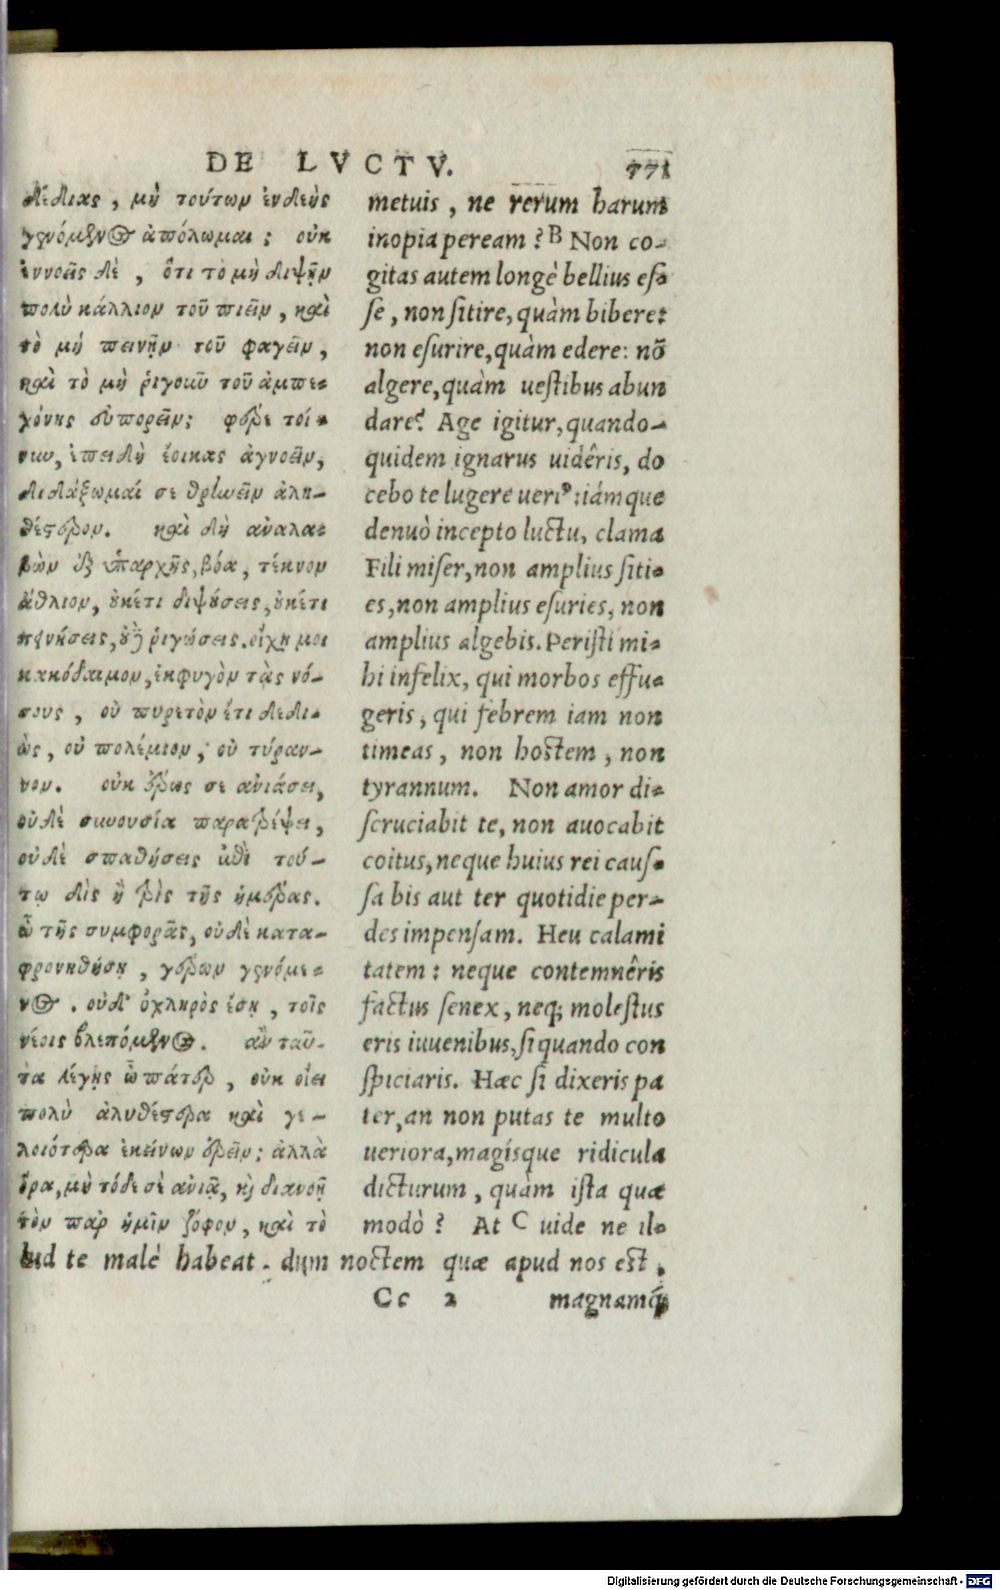 DE LVCTV. 771
δέδιας, μὴ τούτων ἐνδεὴς
γενόμενος ἀπόλωμαι; οὐκ
ἐννοεῖς δὲ, ὅτι τὸ μὴ διψῆν
πολὺ κάλλιον τοῦ πιεῖν, καὶ
τὸ μὴ πεινῆν τοῦ φαγεῖν,
καὶ τὸ μὴ ῥιγοῦν τοῦ ἀμπε-
χόνης εὐπορεῖν; φέρε τοί-
νυν, ἐπειδὴ ἔοικας ἀγνοεῖν,
διδάξωμαί σε θρηνεῖν ἀλη-
θέστερον. καὶ δὴ ἀναλα-
βὼν ἐξ ὑπαρχῆς, βόα, τέκνον
ἄθλιον, οὐκέτι διψήσεις, οὐκέτι
πεινήσεις, οὐδὲ ῥιγώσεις. οἴχῃ μοι
κακόδαιμον, ἐκφυγὼν τὰς νό-
σους, οὐ πυρετὸν ἔτι δεδι-
ὼς, οὐ πολέμιον, οὐ τύραν-
νον. οὐκ ἔρως σε ἀνιάσει,
οὐδὲ συνουσία παρατρέψει,
οὐδὲ σπαθήσεις ἐπὶ τού-
τῳ δὶς ἢ τρὶς τῆς ἡμέρας.
ὢ τῆς συμφορᾶς, οὐδὲ κατα-
φρονηθήσῃ, γέρων γενόμε-
νος. οὐδ' ὀχληρὸς ἔσῃ, τοῖς
νέοις βλεπόμενος. ἂν ταῦ-
τα λέγῃς ὦ πάτερ, οὐκ οἴει
πολὺ ἀληθέστερα καὶ γε-
λοιότερα ἐκείνων ἐρεῖν; ἀλλὰ
ὅρα, μὴ τόδε σὲ ἀνιᾷ, καὶ διανοῇ
τὸν παρ' ἡμῖν ζόφον, καὶ τὸ
metuis, ne rerum harum
inopia peream? B Non co-
gitas autem longè bellius es-
se, non sitire, quàm bibere:
non esurire, quàm edere: nō
algere, quàm uestibus abun
dare? Age igitur, quando-
quidem ignarus uidêris, do
cebo te lugere ueriꝰ: iámque
denuò incepto luctu, clama
Fili miser, non amplius siti-
es, non amplius esuries, non
amplius algebis. Peristi mi-
hi infelix, qui morbos effu-
geris, qui febrem iam non
timeas, non hostem, non
tyrannum. Non amor di-
scruciabit te, non auocabit
coitus, neque huius rei caus-
sa bis aut ter quotidie per-
des impensam. Heu calami
tatem: neque contemnêris
factus senex, neq; molestus
eris iuuenibus, si quando con
spiciaris. Hæc si dixeris pa
ter, an non putas te multo
ueriora, magísque ridicula
dicturum, quàm ista quæ
modò? At C uide ne il-
lud te malè habeat. dum noctem quæ apud nos est,
Cc 2 magnamq́;
Digitalisierung gefördert durch die Deutsche Forschungsgemeinschaft - DFG